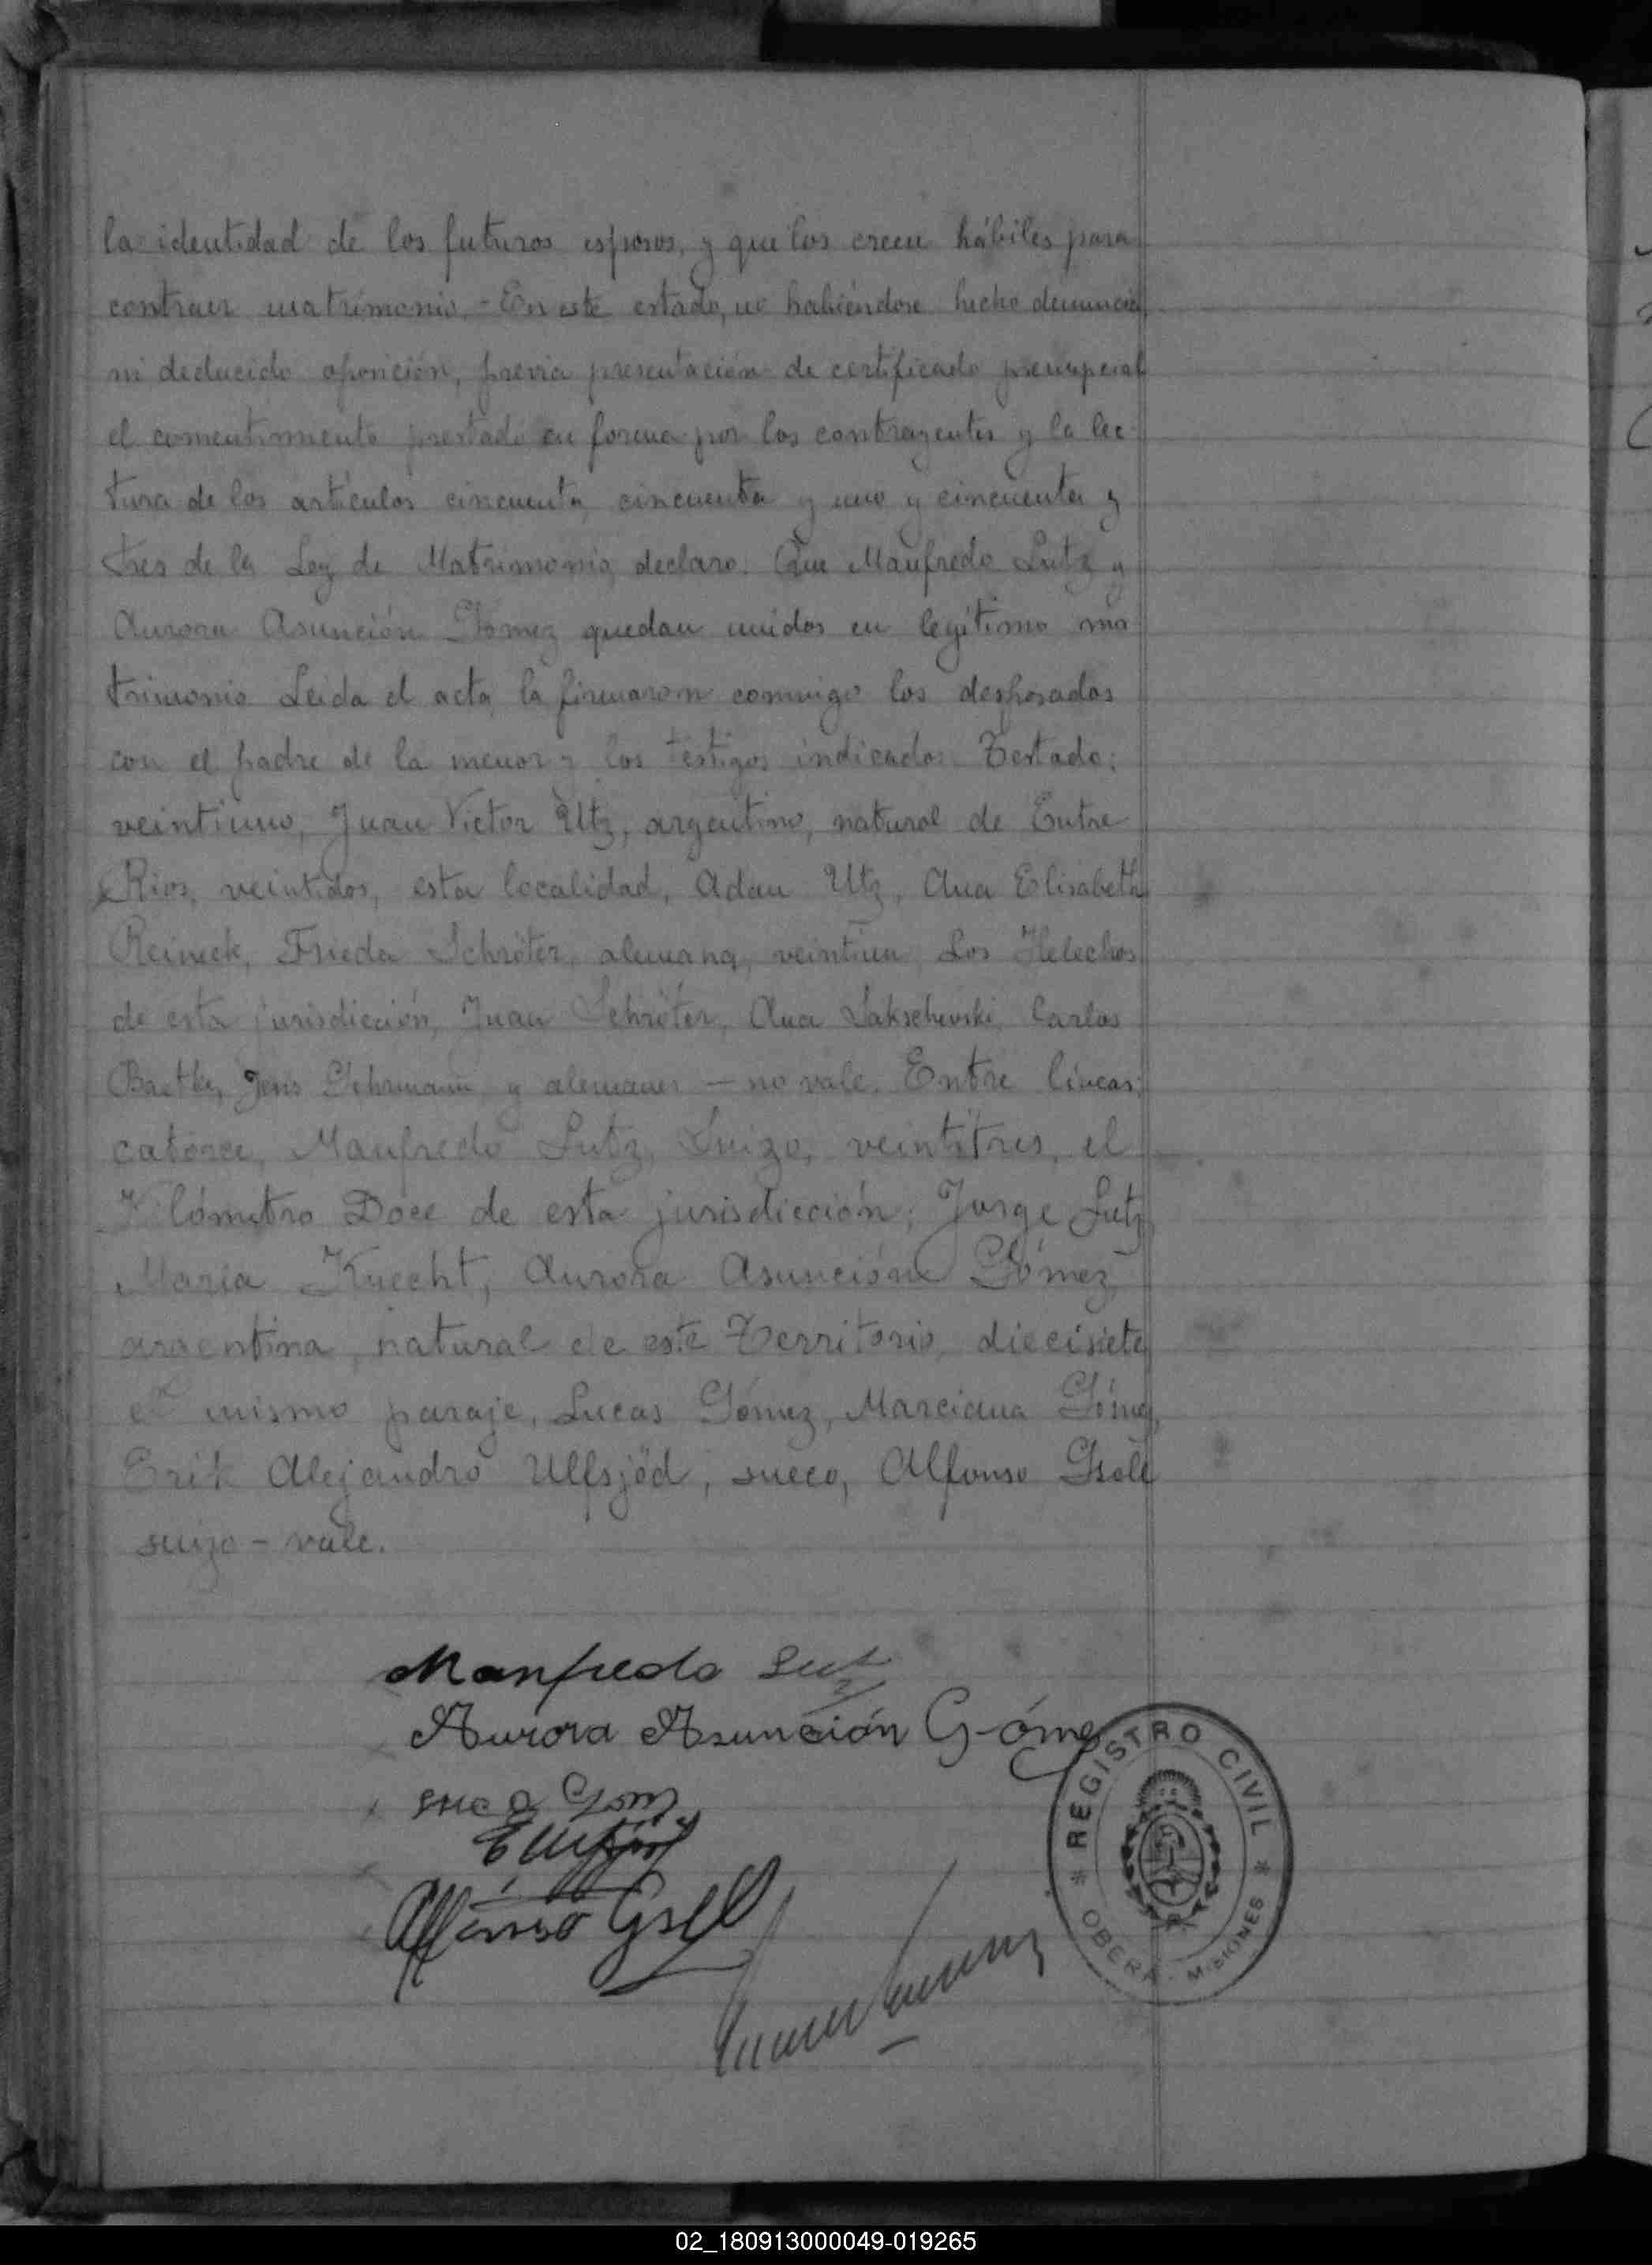 la identidad de los futuros esposos, y que los creen hábiles para
contraer matrimonio. - En este estado, no habiéndose hecho denuncia
ni deducido oposición, previa presentación de certificado prenupcial
el consentimiento prestado en forma por los contrayentes y la lec-
tura de los artículos cincuenta, cincuenta y uno y cincuenta y
tres de la Ley de Matrimonio, declaro: Que Manfredo Lutz y
Aurora Asunción Gómez quedan unidos en legítimo ma
trimonio. Leida el acta, la firmaron conmigo los desposados
con el padre de la menor y los testigos indicados. Testado:
veintiuno, Juan Victor Utz, argentino, natural de Entre
Rios, veintidos, esta localidad, Adan Utz, Ana Elisabeth
Reineck, Frieda Schröter, alemana, veintiun, Los Helechos
de esta jurisdicción, Juan Schröter, Ana Lakschevski, Carlos
Baetke, Jens y alemanes - no vale. Entre líneas:
catorce, Manfredo Lutz, Suizo, veintitres, el
Kilómetro Doce de esta jurisdicción; Jorge Lutz,
María Knecht, Aurora Asunción Gómez
argentina, natural de este Territorio, diecisiete,
el mismo paraje, Lucas Gómez, Marciana Gómez,
Erik Alejandro Ulfsjöd, sueco, Alfonso Gsell
suizo - vale.
Manfredo Lutz
Aurora Asunción Gómez
Alfonso Gsell
REGISTRO CIVIL
OBERA - MISIONES
02_180913000049-019265